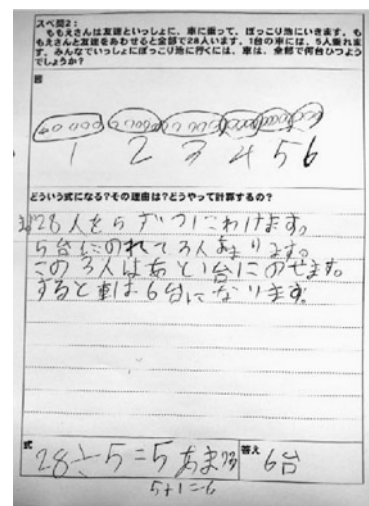 スペ問2：
ももえさんは友達といっしょに、車に乗って、ぽっこり池にいきます。も
もえさんと友達をあわせると全部で28人います。1台の車には、5人乗れま
す。みんなでいっしょにぽっこり池に行くには、車は、全部で何台ひつよう
でしょうか？
図
1 2 3 4 5 6
どういう式になる？その理由は？どうやって計算するの？
まず28人を5ずつにわけます。
5台にのれて3人あまります。
この3人はあと1台にのせます。
すると車は6台になります。
式
28÷5=5あまり3
答え
6台
5+1=6